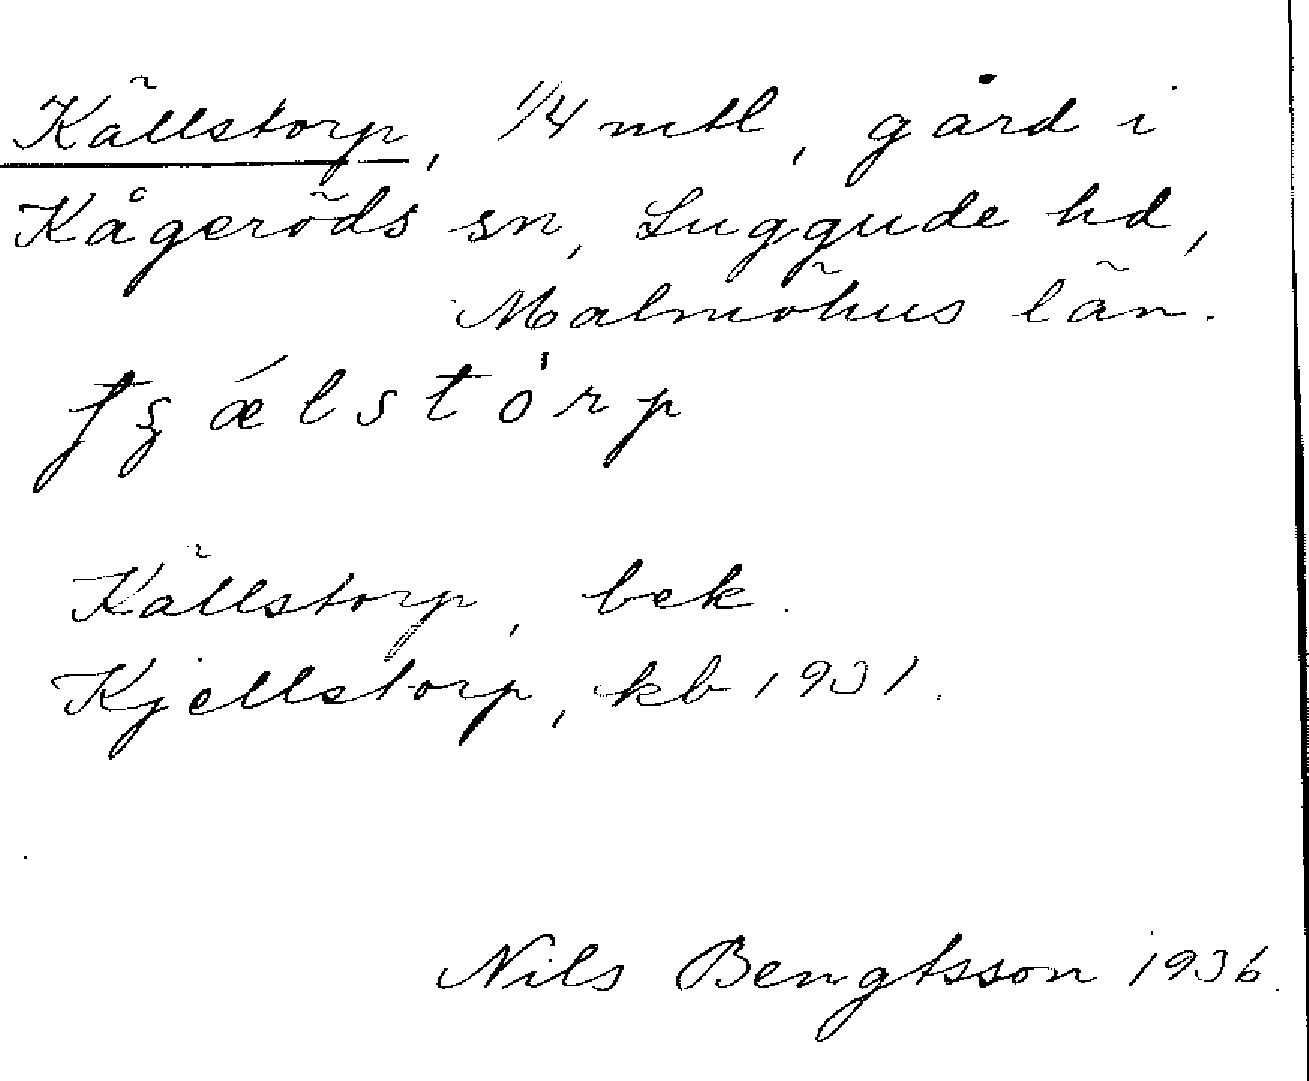 Källstorp, 1/4 mtl, gård i
Kågeröds sn, Luggude hd,
Malmöhus län.
tʂǽlstórp
Källstorp, bek.
Kjellstorp, kb 1931.
Nils Bengtsson 1936.